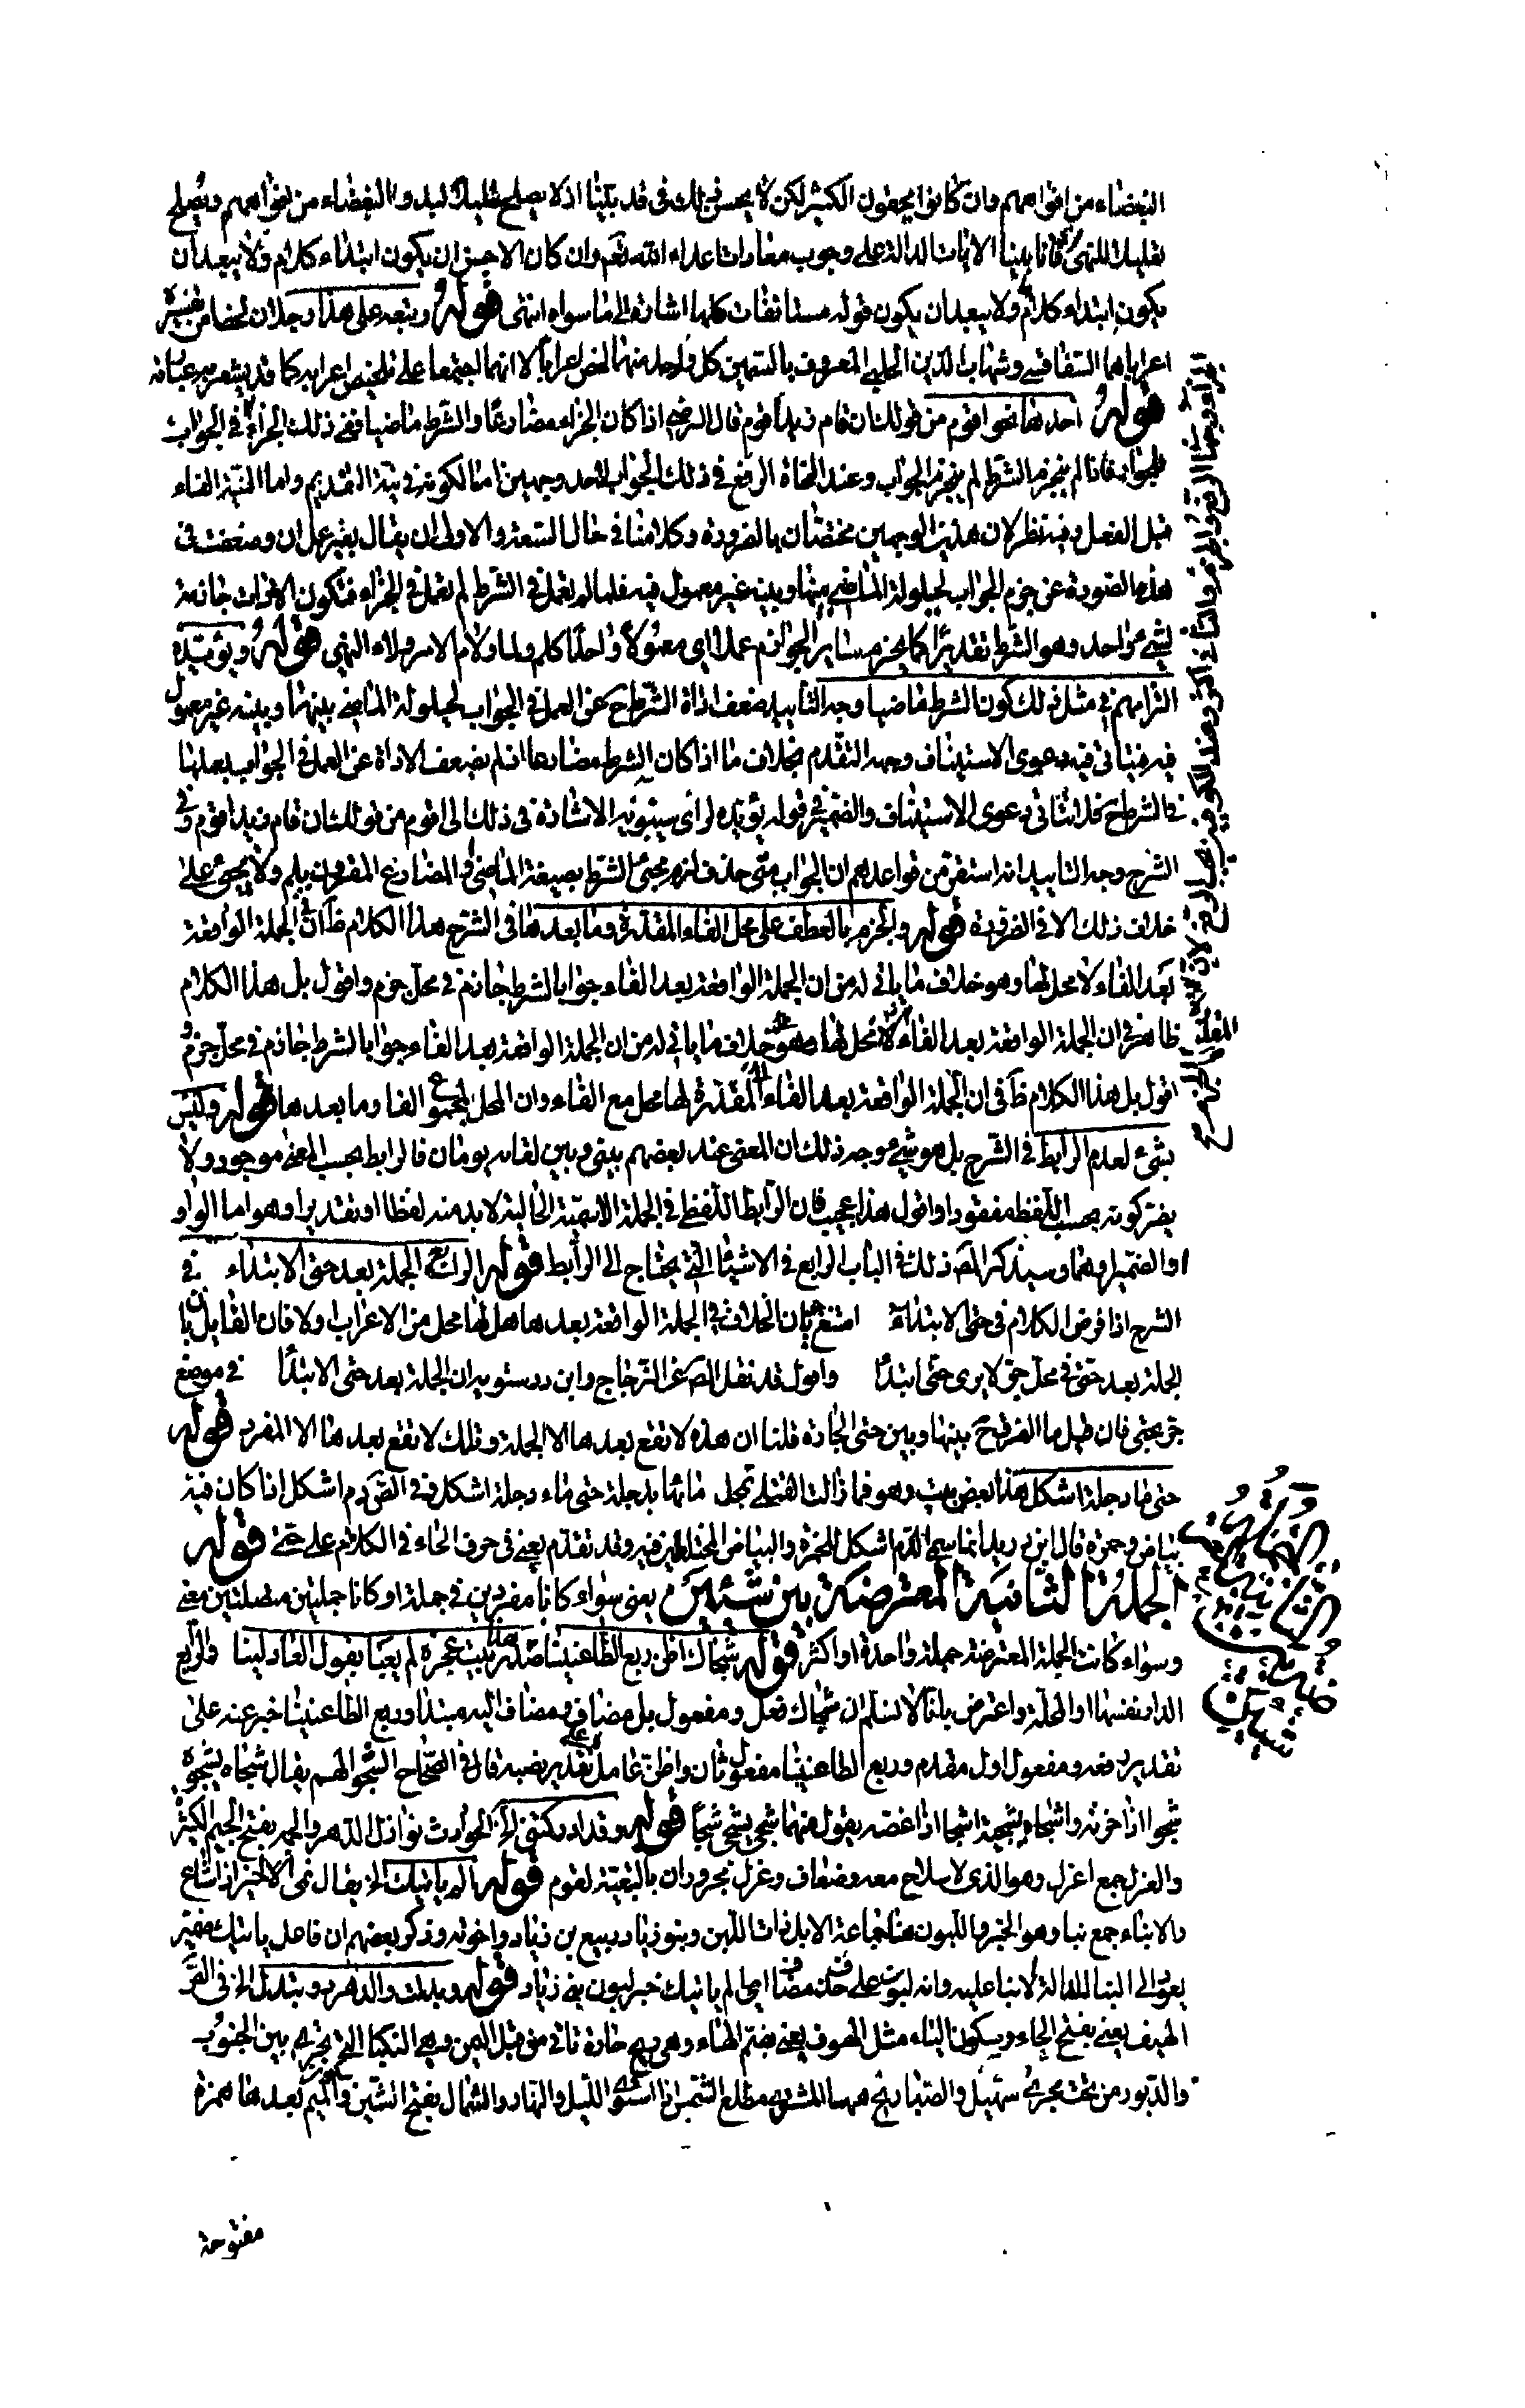 البغضاء من افواههم وان كانوا يخفون الكثير لكن لا يحسن ذلك فى قد بيّنا اذ لا يصلح تعليلا لبدو البغضاء من افواههم ويصلح
تعليلا للنهى فانا بينا الايات الدالة على وجوب معادات اعداء الله تعم وان كان الاحسن ان يكون ابتداء كلام ولا يبعد ان
يكون ابتداء كلام ولا يبعد ان يكون قوله مستانفات كلها اشارة الى ما سواه انتهى قوله وتبعه على هذا رجلان لخصا من تفسيره
اعرابا هما السفاقسى وشهاب الدين الحلبى المعروف بالسمين كل واحد منهما لخص اعرابا لا انهما اجتمعا على تلخيص اعرابه كما قد يشعر به عبارته
قوله احدها نحو اقوم من قولك ان قام زيد اقوم قال الرضى اذا كان الجزاء مضارعا والشرط ماضيا ففى ذلك الجزاء فى الجواب
فانا لم ينجزم الشرط لم ينجزم الجواب وعند النحاة الرفع فى ذلك الجواب لاحد وجهين اما لكونه فى نية التقديم واما النية الفاء
قبل الفعل وفيه نظر لان هذين الوجهين مختصان بالضرورة وكلامنا فى حال السعة والاولى ان يقال بغير عمل ان وضعفت فى
هذه الصورة عن جزم الجواب لحيلولة الماضى بينها وبينه غير معمول فيه فلما لم تعمل فى الشرط لم تعمل فى الجزاء فتكون الادوات جازمة
لشىء واحد وهو الشرط تقديرا كما يجزم سائر الجوازم عملا اى معمولا واحدا كلم ولما ولام الامر ولاء النهى قوله ويؤيده
التزامهم فى مثل ذلك كون الشرط ماضيا وجه التاييد ضعف اداة الشرط ح عن العمل فى الجواب لحيلولة الماضى بينها وبينه غير معمول
فيه فيتاتى فيه دعوى الاستيناف وجه التقدم بخلاف ما اذا كان الشرط مضارعا اذ لم يضعف الاداة عن العمل فى الجواب بعملها
فى الشرط ح فلا يتاتى دعوى الاستيناف والضمير فى قوله يؤيده لراى سيبويه الاشارة فى ذلك الى اقوم من قولك ان قام زيد اقوم وفى
الشرح وجه التاييد انه استقر من قواعدهم ان الجواب متى حذف لزم مجىء الشرط بصيغة الماضى او المضارع المقرون بلم ولا يجىء على
خلاف ذلك الا فى الضرورة قوله والجزم بالعطف على محل الفاء المقدرة وما بعدها فى الشرح هذا الكلام ظ ان الجملة الواقعة
بعد الفاء لا محل لها وهو خلاف ما ياتى له من ان الجملة الواقعة بعد الفاء جوابا لشرط جازم فى محل جزم واقول بل هذا الكلام
ظاهر فى ان الجملة الواقعة بعد الفاء لا محل لها وهو خلاف ما ياتى له من ان الجملة الواقعة بعد الفاء جوابا لشرط جازم فى محل جزم و
اقول بل هذا الكلام ظ فى ان الجملة الواقعة بعد الفاء المقدرة لها محل مع الفاء وان المحل لمجموع الفا وما بعدها قوله وليس
بشىء لعدم الرابط فى الشرح بل هو شىء وجه ذلك ان المعنى عند بعضهم بينى وبين لقائه يومان فالرابط بحسب المعنى موجود ولا
يضر كونه بحسب اللفظ مفقودا واقول هذا عجيب فان الرابط اللفظى فى الجملة الاسمية الحالية لابد منه لفظا او تقديرا وهو اما الواو
او الضمير او هما وسيذكر المص ذلك فى الباب الرابع فى الاشياء التى يحتاج الى الرابط قوله الرابع الجملة بعد حتى الابتداء فى
الشرح اذا فرض الكلام فى حتى الابتدائية امتنع بيان الخلاف فى الجملة الواقعة بعدها هل لها محل من الاعراب ولا فان القايل بان
الجملة بعد حتى فى محل جر لا يرى حتى ابتداء واقول قد نقل المص عن الزجاج وابن درستويه ان الجملة بعد حتى الابتداء فى موضع
جر بحتى فان قيل ما الفرق ح بينها وبين حتى الجارة قلنا ان هذه لا تقع بعدها الا الجملة وتلك لا تقع بعدها الا المفرد قوله
حتى ماء دجلة اشكل هذا بعض بيت وهو فما زالت القتلى تمجّ دمائها بدجلة حتى ماء دجلة اشكل فى الصّ دم اشكل اذا كان فيه
بياض وحمرة قال ابن دريد انما سمى الدّم اشكل للحمرة والبياض المختلطين فيه وقد تقدم يعنى فى حرف الحاء فى الكلام على حتى قوله
الجملة الثانية المعترضة بين شيئين يعنى سواء كانا مفردين فى جملة او كانا جملتين متصلتين معنى
وسواء كانت الجملة المعترضة جملة واحدة او اكثر قوله شجاك اظن ربع الظاعنينا هذا صدر بيت عجزه لم يعبأ بقول العاذلينا والربع
الدار نفسها او المحلة واعترض بانا لا نسلم ان شجاك فعل ومفعول بل مضاف ومضاف اليه مبتدا وربع الظاعنينا خبر عنه على
تقدير رفعه ومفعول اول مقدم وربع الظاعنينا مفعول ثان واظن عامل على تقدير نصبه قال فى الصّحاح الشجو الهم يقال شجاه يشجوه
شجوا اذا حزنه واشجاه يشجيه اشجا اذا اغصه يقول منهما شجى يشجى شجًا قوله وقد ادركتنى الخ الحوادث نوازل الدهر والجم بفتح الجيم الكثير
والعزل جمع اعزل وهو الذى لا سلاح معه وضعاف وعزل مجروران بالتبعية لقوم قوله الم ياتيك الخ يقال نمى الخبر اذا شاع
والانباء جمع نبا وهو الخبر واللبون هنا جماعة الابل ذات اللبن وبنو زياد ربيع بن زياد واخوته وذكر بعضهم ان فاعل ياتيك ضمير
يعود الى النبا لدلالة الانباء عليه وانه لبون على حذف مضاف اى الم ياتيك خبر لبون بنى زياد قوله وبدلت والدهر ذو تبدل الخ فى الصّ
الهيف يعنى بفتح الهاء وسكون الياء مثل الهوف يعنى بضم الهاء وهى ريح حارة تاتى من قبل اليمن وهى النكبا التى تجرى بين الجنوب
والدّبور من تحت مجرى سهيل والصّبا ريح مهبها المستوى مطلع الشمس اذا استوى الليل والنهار والشمال بفتح الشين والميم بعدها همزة
مفتوحة